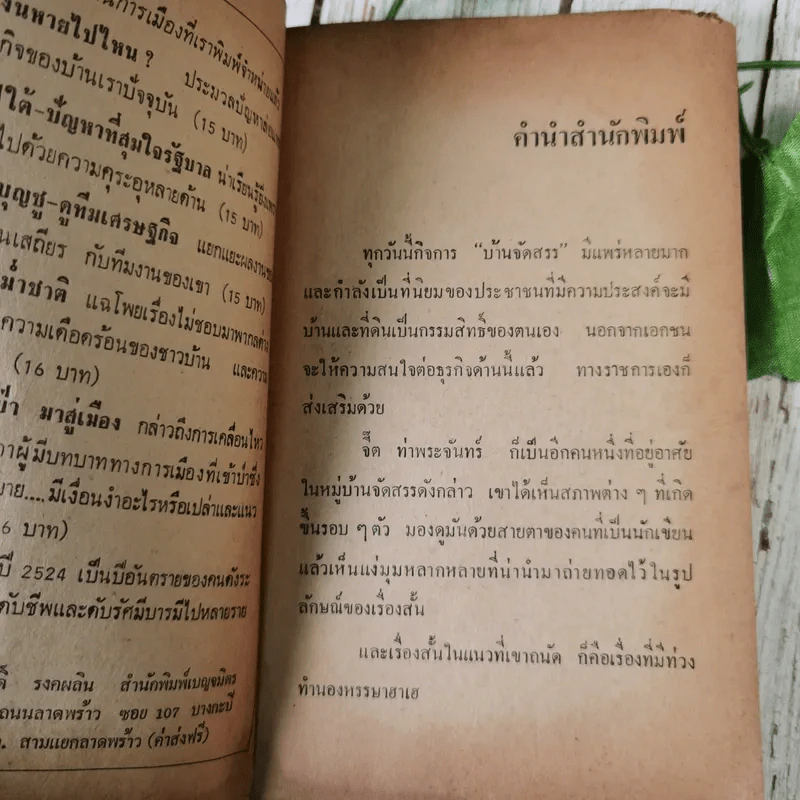 นการเมืองที่เราพิมพ์จำหน่ายแล้ว
งินหายไปไหน ? ประมวลปัญหา
กิจของบ้านเราปัจจุบัน (15 บาท)
ใต้-ปัญหาที่สุมใจรัฐบาล น่าเรียนรู้ยิ่ง
ไปด้วยความคุระอุหลายด้าน (15 บาท)
บุญชู-ดูทีมเศรษฐกิจ แยกแยะผลงาน
นเสถียร กับทีมงานของเขา (15 บาท)
ม่ำชาติ แฉโพยเรื่องไม่ชอบมาพากล
ความเดือดร้อนของชาวบ้าน และความ
(16 บาท)
ป่า มาสู่เมือง กล่าวถึงการเคลื่อนไหว
าผู้มีบทบาททางการเมืองที่เข้าป่าซึ่ง
าย.... มีเงื่อนงำอะไรหรือเปล่าและแนว
6 บาท)
ปี 2524 เป็นปีอันตรายของคนดังระ
ดับชีพและดับรัศมีบารมีไปหลายราย
รงคผลิน สำนักพิมพ์เบญจมิตร
ถนนลาดพร้าว ซอย 107 บางกะปิ
สามแยกลาดพร้าว (ค่าส่งฟรี)
คำนำสำนักพิมพ์
ทุกวันนี้กิจการ “บ้านจัดสรร” มีแพร่หลายมาก
และกำลังเป็นที่นิยมของประชาชนที่มีความประสงค์จะมี
บ้านและที่ดินเป็นกรรมสิทธิ์ของตนเอง นอกจากเอกชน
จะให้ความสนใจต่อธุรกิจด้านนี้แล้ว ทางราชการเองก็
ส่งเสริมด้วย
จิ๊ด ท่าพระจันทร์ ก็เป็นอีกคนหนึ่งที่อยู่อาศัย
ในหมู่บ้านจัดสรรดังกล่าว เขาได้เห็นสภาพต่าง ๆ ที่เกิด
ขึ้นรอบ ๆ ตัว มองดูมันด้วยสายตาของคนที่เป็นนักเขียน
แล้วเห็นแง่มุมหลากหลายที่น่านำมาถ่ายทอดไว้ในรูป
ลักษณ์ของเรื่องสั้น
และเรื่องสั้นในแนวที่เขาถนัด ก็คือเรื่องที่มีท่วง
ทำนองหรรษาฮาเฮ